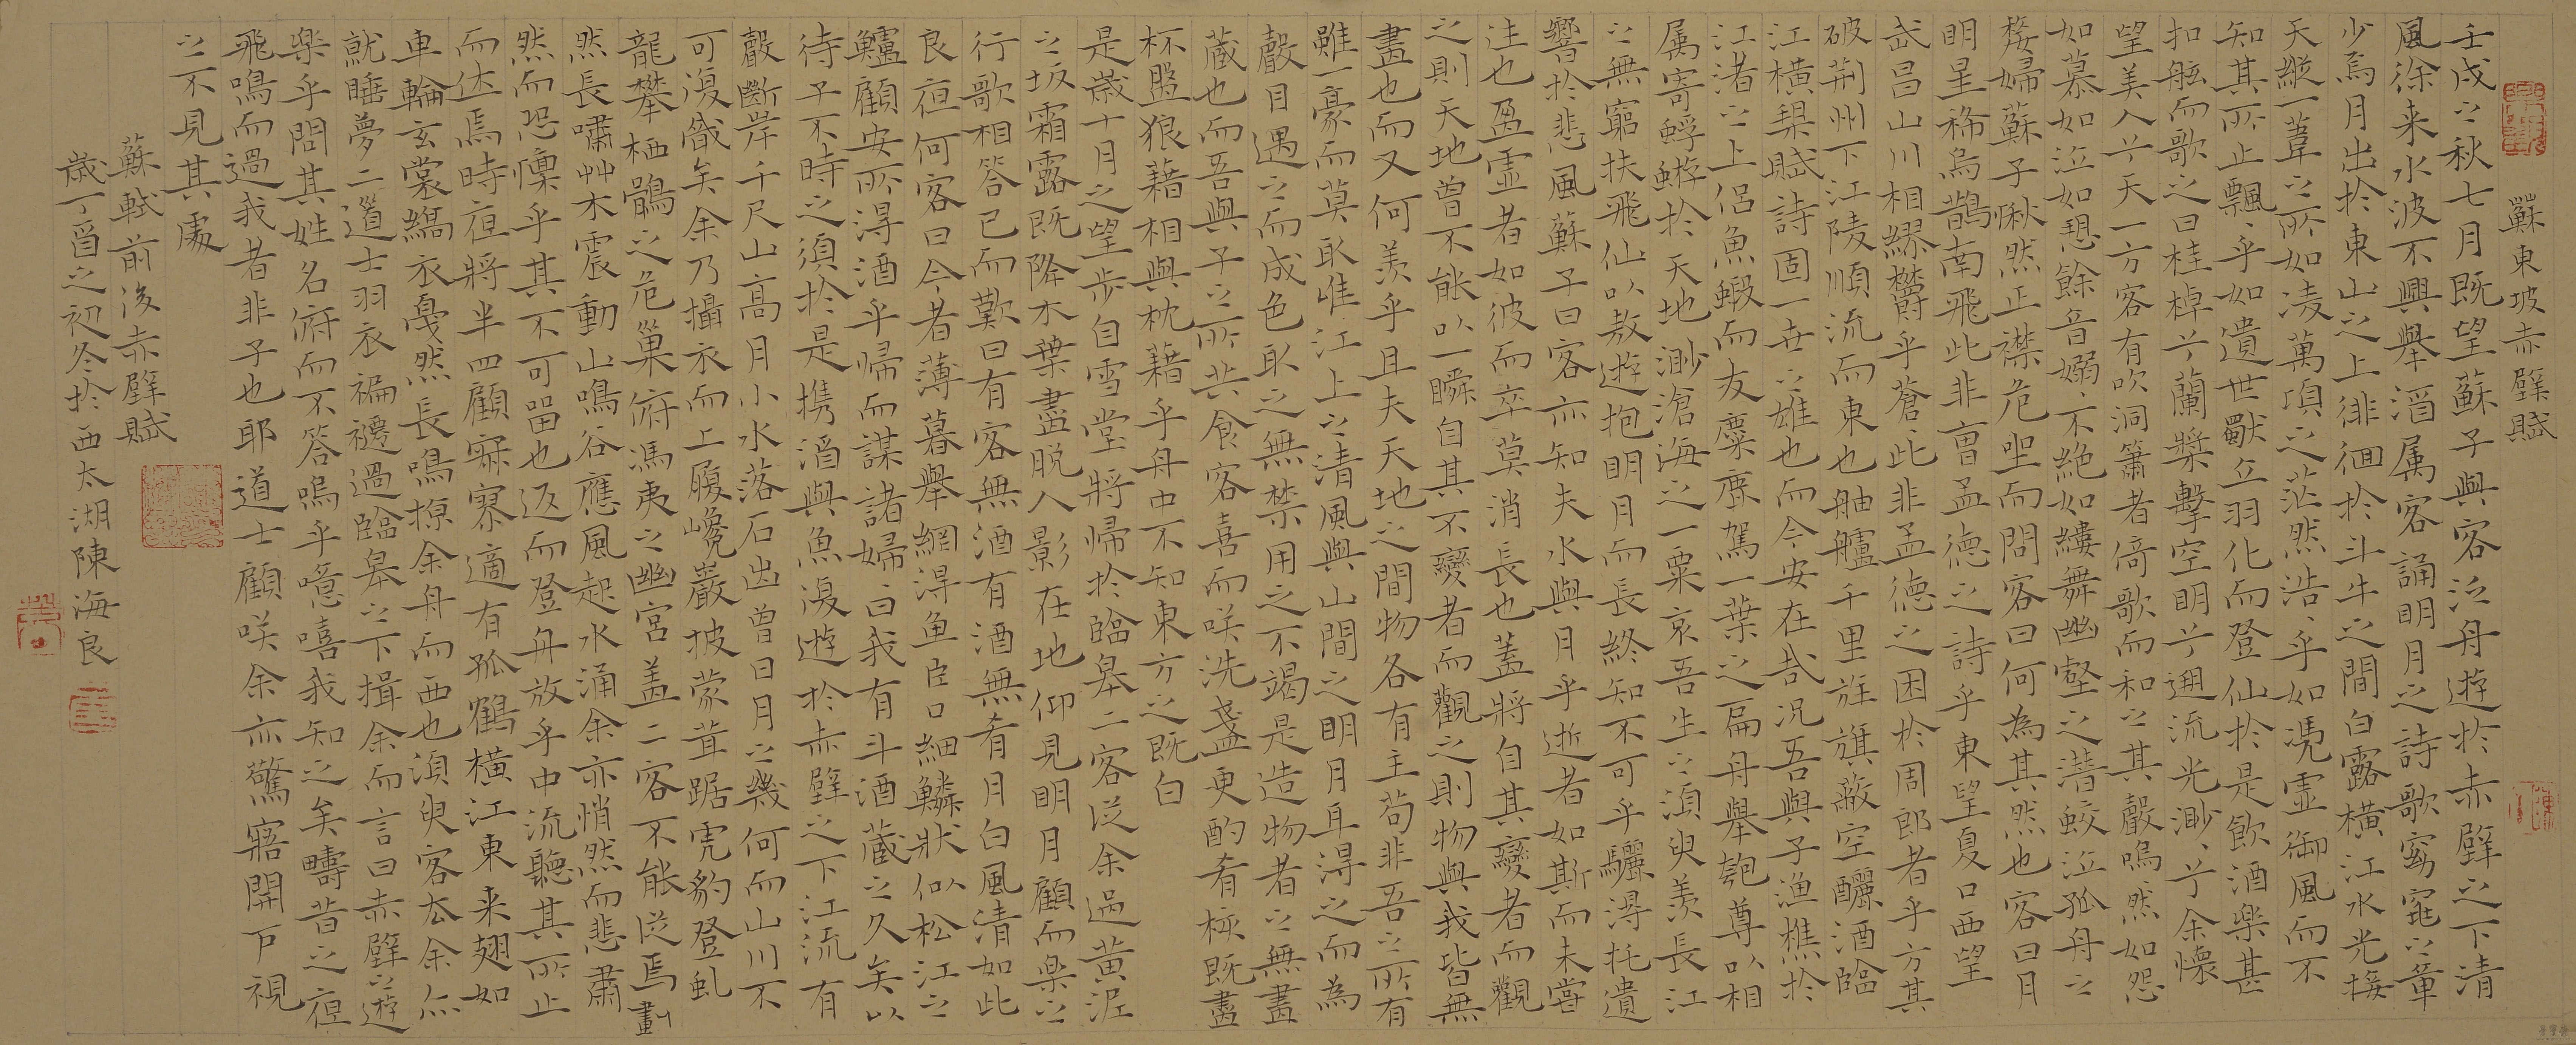 蘇東坡赤壁賦
壬戌之秋七月既望蘇子與客泛舟遊於赤壁之下清
風徐来水波不興舉酒属客誦明月之詩歌窈窕之章
少焉月出於東山之上徘徊於斗牛之間白露橫江水光接
天縱一葦之所如凌萬頃之茫然浩〻乎如馮虚御風而不
知其所止飄〻乎如遺世獨立羽化而登仙於是飲酒樂甚
扣舷而歌之曰桂棹兮蘭槳擊空明兮遡流光渺〻兮余懷
望美人兮天一方客有吹洞簫者倚歌而和之其聲嗚然如怨
如慕如泣如愬餘音嫋〻不絶如縷舞幽壑之潜蛟泣孤舟之
嫠婦蘇子愀然正襟危坐而問客曰何為其然也客曰月
明星稀烏鵲南飛此非曹孟德之詩乎東望夏口西望
武昌山川相繆欝乎蒼〻此非孟德之困於周郎者乎方其
破荆州下江陵順流而東也舳艫千里旌旗蔽空釃酒臨
江橫槊賦詩固一世之雄也而今安在哉況吾與子漁樵於
江渚之上侶魚蝦而友麋鹿駕一葉之扁舟舉匏尊以相
属寄蜉蝣於天地渺滄海之一粟哀吾生之須臾羨長江
之無窮挟飛仙以敖遊抱明月而長終知不可乎驟得托遺
響於悲風蘇子曰客亦知夫水與月乎逝者如斯而未嘗
往也盈虚者如彼而卒莫消長也蓋將自其變者而觀
之則天地曾不能以一瞬自其不變者而觀之則物與我皆無
盡也而又何羨乎且夫天地之間物各有主苟非吾之所有
雖一豪而莫取惟江上之清風與山間之明月耳得之而為
聲目遇之而成色取之無禁用之不竭是造物者之無盡
蔵也而吾與子之所共食客喜而咲洗盞更酌肴核既盡
杯盤狼藉相與枕藉乎舟中不知東方之既白
是歲十月之望步自雪堂將歸於臨皋二客從余過黄泥
之坂霜露既降木葉盡脱人影在地仰見明月顧而樂之
行歌相答已而歎曰有客無酒有酒無肴月白風清如此
良夜何客曰今者薄暮舉網得魚巨口細鱗狀似松江之
鱸顧安所得酒乎帰而謀諸婦〻曰我有斗酒蔵之久矣以
待子不時之須於是携酒與魚復遊於赤壁之下江流有
聲斷岸千尺山高月小水落石出曾日月之幾何而山川不
可復識矣余乃攝衣而上履巉巖披蒙茸踞虎豹登虬
龍攀栖鶻之危巢俯馮夷之幽宮盖二客不能從焉劃
然長嘯艸木震動山鳴谷應風起水涌余亦悄然而悲肅
然而恐凛乎其不可留也返而登舟放乎中流聽其所止
而休焉時夜將半四顧寂寥適有孤鶴橫江東来翅如
車輪玄裳縞衣戛然長鳴掠余舟而西也須臾客去余亦
就睡夢二道士羽衣褊褼過臨皋之下揖余而言曰赤壁之遊
樂乎問其姓名俯而不答嗚乎噫嘻我知之矣疇昔之夜
飛鳴而過我者非子也耶道士顧咲余亦驚寤開户視
之不見其處
蘇軾前後赤壁賦
歲丁酉之初冬於西太湖陳海良